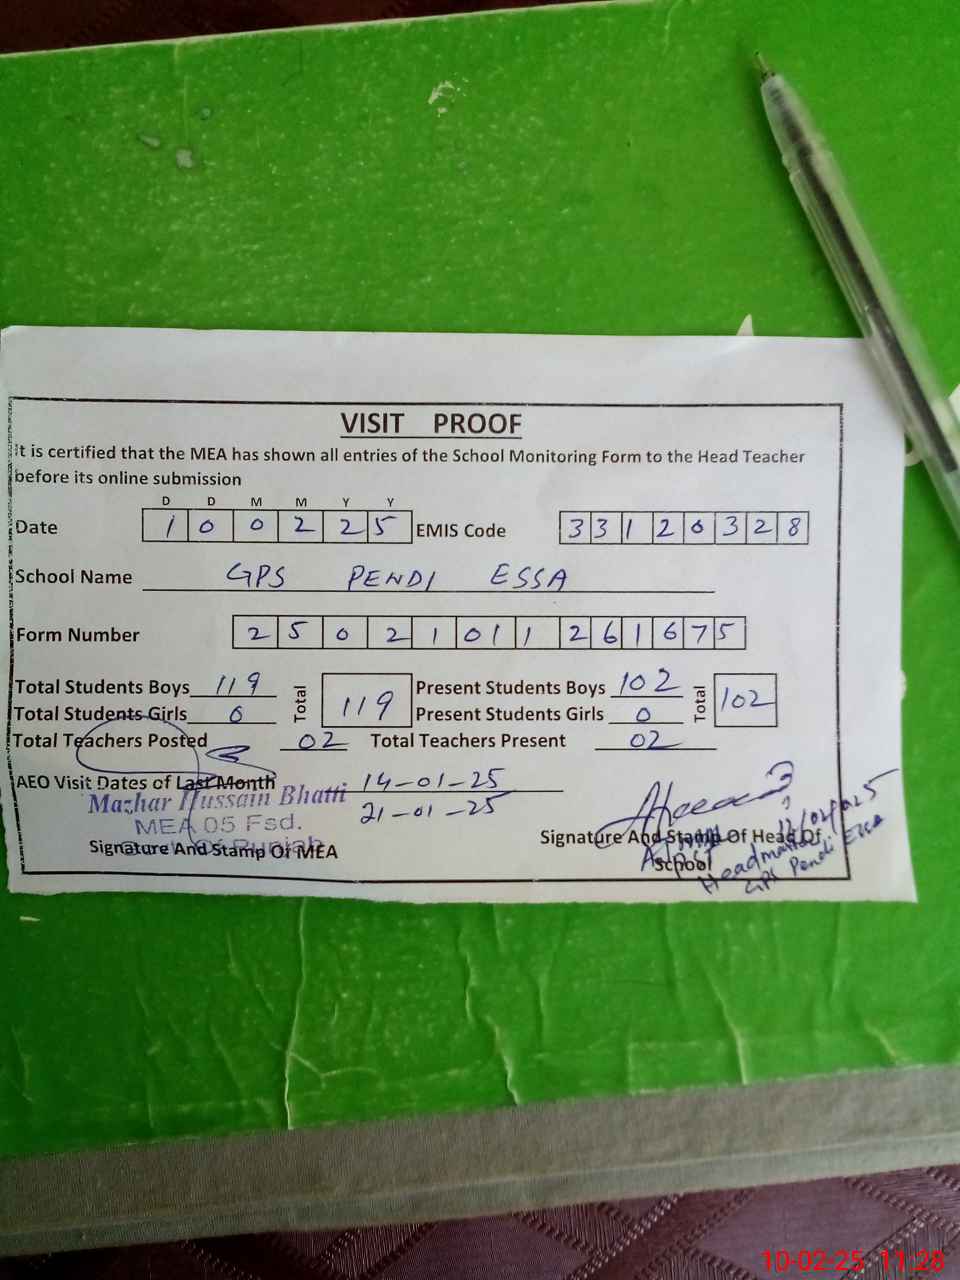 VISIT PROOF
It is certified that the MEA has shown all entries of the School Monitoring Form to the Head Teacher
before its online submission
D D M M Y Y
Date 1 0 0 2 2 5 EMIS Code 3 3 1 2 0 3 2 8
School Name GPS PENDI ESSA
Form Number 2 5 0 2 1 0 1 1 2 6 1 6 7 5
Total Students Boys 119 Total 119 Present Students Boys 102 Total 102
Total Students Girls 0 Present Students Girls 0
Total Teachers Posted 02 Total Teachers Present 02
AEO Visit Dates of Last Month 14-01-25
21-01-25
Mazhar Hussain Bhatti
MEA 05 Fsd.
Signature And Stamp Of MEA
Signature And Stamp Of Head Of
School
Headmaster
GPS Pendi Essa
10-02-25 11:28